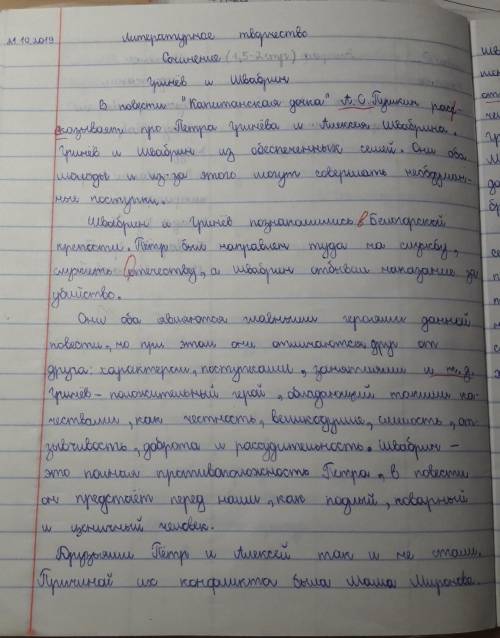 11.10.2019 Литературное творчество
Сочинение (1,5-2стр)
Гринёв и Швабрин
В повести "Капитанская дочка" А.С.Пушкин рас-
сказывает про Петра Гринёва и Алексея Швабрина.
Гринёв и Швабрин из обеспеченных семей. Они оба
молоды и из-за этого могут совершать необдуман-
ные поступки.
Швабрин и Гринёв познакомились в Белогорской
крепости. Пётр был направлен туда на службу,
служить отечеству, а Швабрин отбывал наказание за
убийство.
Они оба являются главными героями данной
повести, но при этом они отличаются друг от
друга: характером, поступками, занятиями и т.д.
Гринёв - положительный герой, обладающий такими ка-
чествами, как честность, великодушие, смелость, от-
зывчивость, доброта и рассудительность. Швабрин -
это полная противоположность Петра, в повести
он предстаёт перед нами, как подлый, коварный
и циничный человек.
Друзьями Пётр и Алексей так и не стали.
Причиной их конфликта была Маша Миронова.